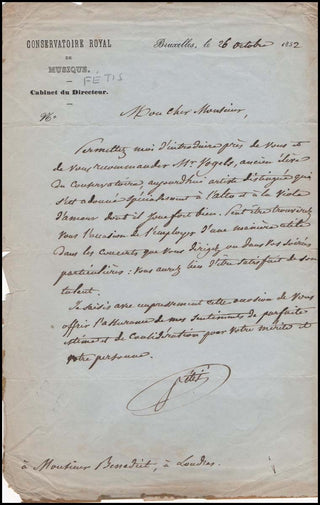 CONSERVATOIRE ROYAL
DE
MUSIQUE.
FÉTIS
Cabinet du Directeur.
N°
Bruxelles, le 26 octobre 1852
Mon cher Monsieur,
Permettez moi d'introduire près de vous et
de vous recommander Mr. Vogels, ancien élève
du Conservatoire, aujourd'hui artiste distingué qui
s'est adonné spécialement à l'alto et à la viole
d'amour dont il joue fort bien. Peut être trouverez
vous l'occasion de l'employer d'une manière utile
dans les concerts que vous dirigez ou dans vos soirées
particulières : vous aurez lieu d'être satisfait de son
talent.
Je saisis avec empressement cette occasion de vous
offrir l'assurance de mes sentiments de parfaite
estime et de considération pour votre mérite et
votre personne.
Fétis
à Monsieur Benedict, à Londres.